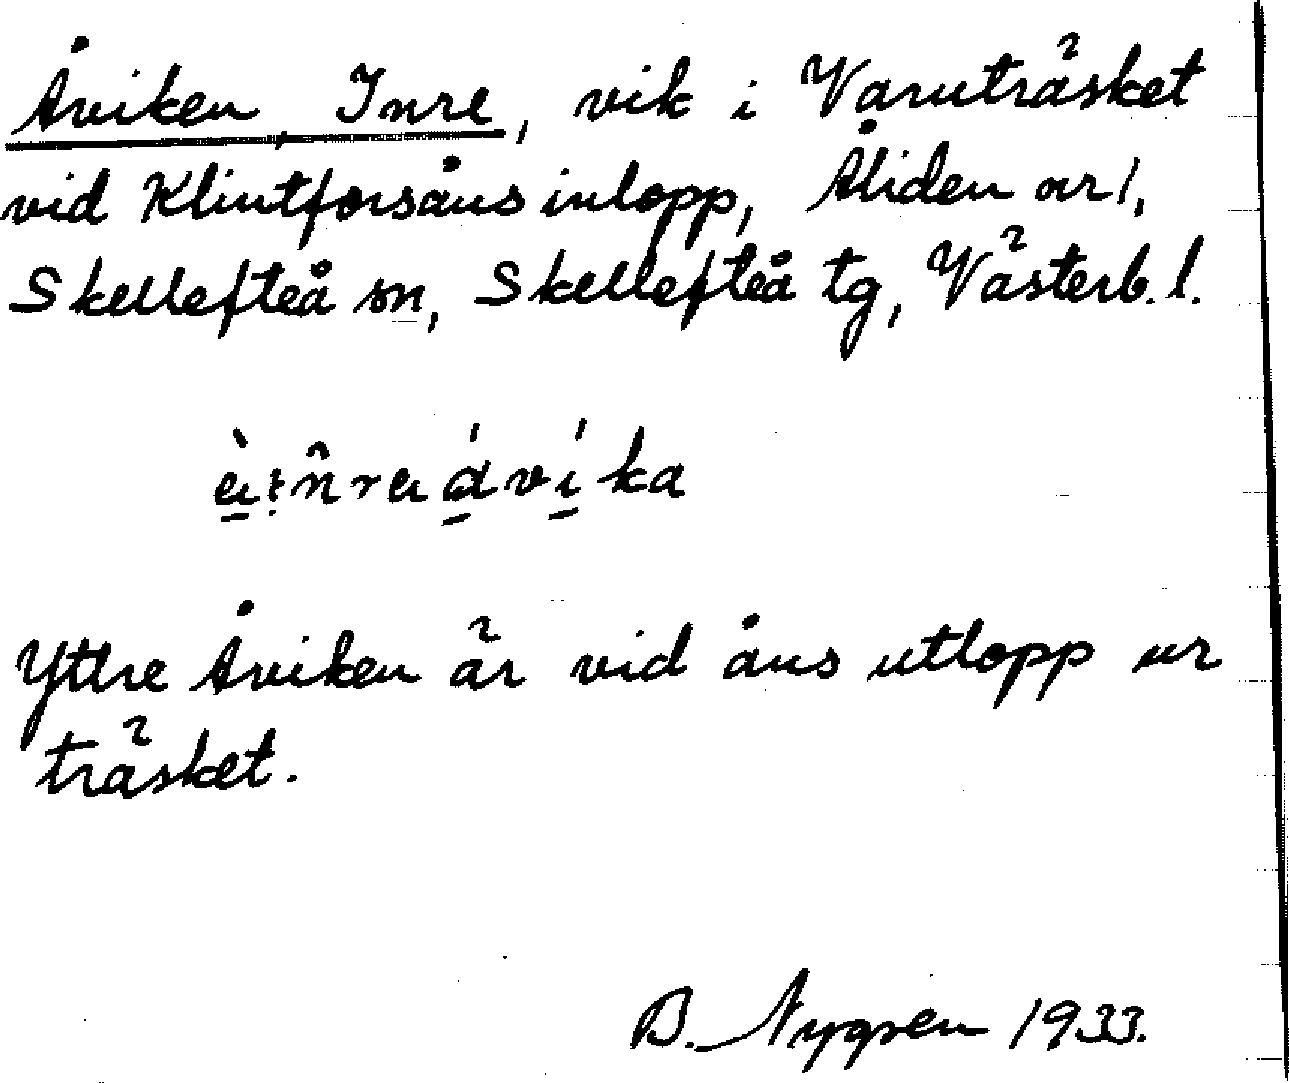 Åviken, Inre, vik i Varuträsket
vid Klintforsåns inlopp, Åliden nr 1,
Skellefteå sn, Skellefteå tg, Västerb. l.
Yttre Åviken är vid åns utlopp ur
träsket.
B. Nygren 1933.